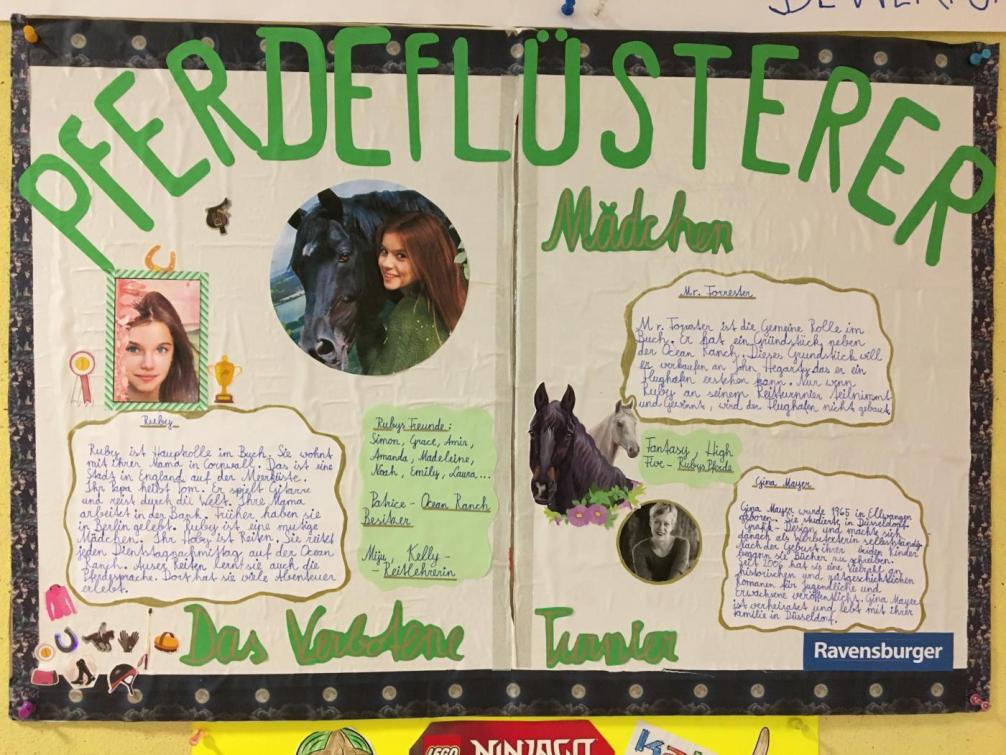 PFERDEFLÜSTERER
Mädchen
Ruby
Ruby ist Hauptrolle im Buch. Sie wohnt
mit ihrer Mama in Cornwall. Das ist eine
Stadt in England auf der Meerküste.
Ihr Papa heißt Tom. Er spielt Gitarre
und reist durch die Welt. Ihre Mama
arbeitet in der Bank. Früher haben sie
in Berlin gelebt. Ruby ist eine mutige
Mädchen. Ihr Hoby ist Reiten. Sie reitet
jeden Dienstagnachmittag auf der Ocean
Ranch. Auser Reiten lernt sie auch die
Pferdesprache. Dort hat sie viele Abenteuer
erlebt.
Rubys Freunde:
Simon, Grace, Amir,
Amanda, Madeleine,
Noah, Emily, Laura...
Patrice - Ocean Ranch
Besitzer
Miju, Kelly -
Reitlehrerin
Mr. Forrester
Mr. Forrester ist die Gemeine Rolle im
Buch. Er hat ein Grundstück neben
der Ocean Ranch. Dieses Grundstück will
er verkaufen an John Hegarty das er ein
Flughafen erstehen kann. Nur wenn
Ruby an seinem Reitturnier teilnimmt
und Gewinnt, wird der Flughafen nicht gebaut
Fantasy, High
Five - Rubys Pferde
Gina Mayer
Gina Mayer wurde 1965 in Ellwangen
geboren. Sie studierte in Düsseldorf
Grafik-Design und machte sich
danach als Werbetexterin selbstständig.
Nach der Geburt ihrer beiden Kinder
begann sie Bücher zu schreiben.
Seit 2006 hat sie eine Vielzahl an
historischen und zeitgeschichtlichen
Romanen für Jugendliche und
Erwachsene veröffentlicht. Gina Mayer
ist verheiratet und lebt mit ihrer
Familie in Düsseldorf.
Das Verbotene Turnier
Ravensburger
LEGO NINJAGO